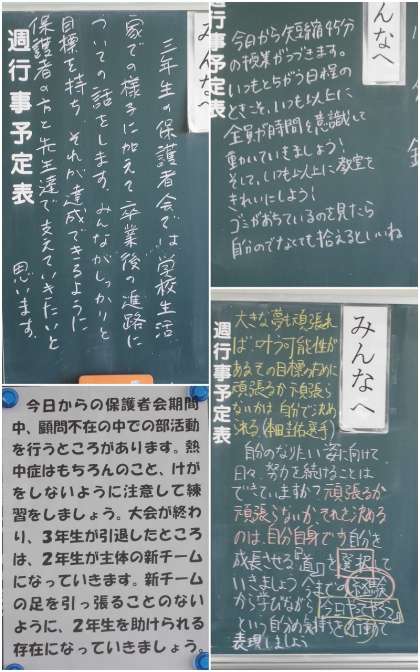 みんなへ
三年生の保護者会では、学校生活、
家での様子に加えて卒業後の進路に
ついての話をします。みんながしっかりと
目標を持ち、それが達成できるように
保護者の方と先生達で支えていきたいと
思います。
週行事予定表
みんなへ
今日から短縮45分
の授業がつづきます。
いつもとちがう日程の
ときこそ、いつも以上に
全員が時間を意識して
動いていきましょう！
そして、いつも以上に教室を
きれいにしよう！
ゴミがおちているのを見たら
自分のでなくても拾えるといいね
行事予定表
今日からの保護者会期間
中、顧問不在の中での部活動
を行うところがあります。熱
中症はもちろんのこと、けが
をしないように注意して練
習をしましょう。大会が終わ
り、３年生が引退したところ
は、２年生が主体の新チーム
になっていきます。新チーム
の足を引っ張ることのない
ように、２年生を助けられる
存在になっていきましょう。
みんなへ
週行事予定表
大きな夢も頑張れ
ば叶う可能性が
あるその目標のために
頑張るか頑張ら
ないかは自分で決め
られる(本田圭佑選手)
自分のなりたい姿に向けて、
日々、努力を続けることは
できていますか？頑張るか
頑張らないか、それを決める
のは、自分自身です自分を
成長させる『道』を選択して
いきましょう今までの経験
から学びながら『今日やってやろう』
という自分の気持ちを行動で
表現しましょう